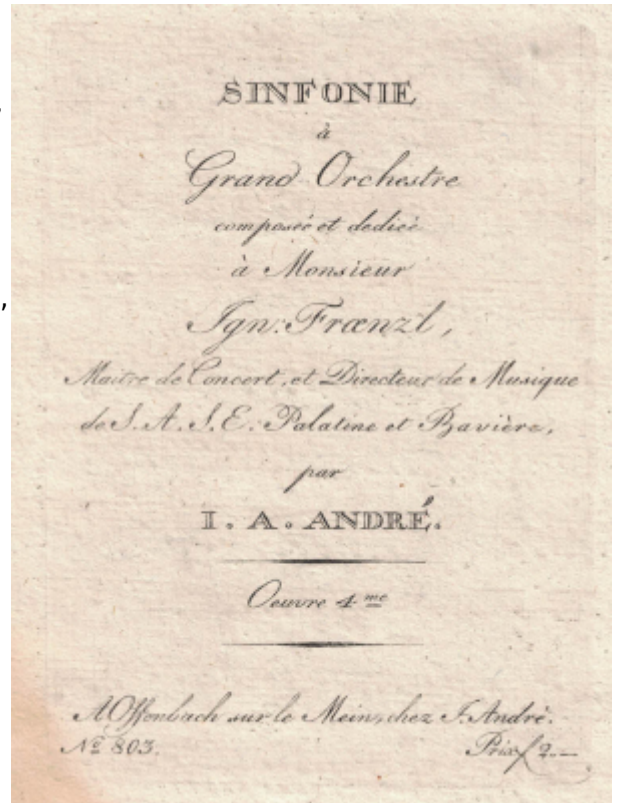 SINFONIE
à
Grand Orchestre
composée et dediée
à Monsieur
Ign: Frænzl,
Maitre de Concert, et Directeur de Musique
de S. A. S. E. Palatine et Bavière,
par
I. A. ANDRÉ.
Oeuvre 4me
A Offenbach sur le Mein, chez J. André.
No 803.
Prix f 2.—